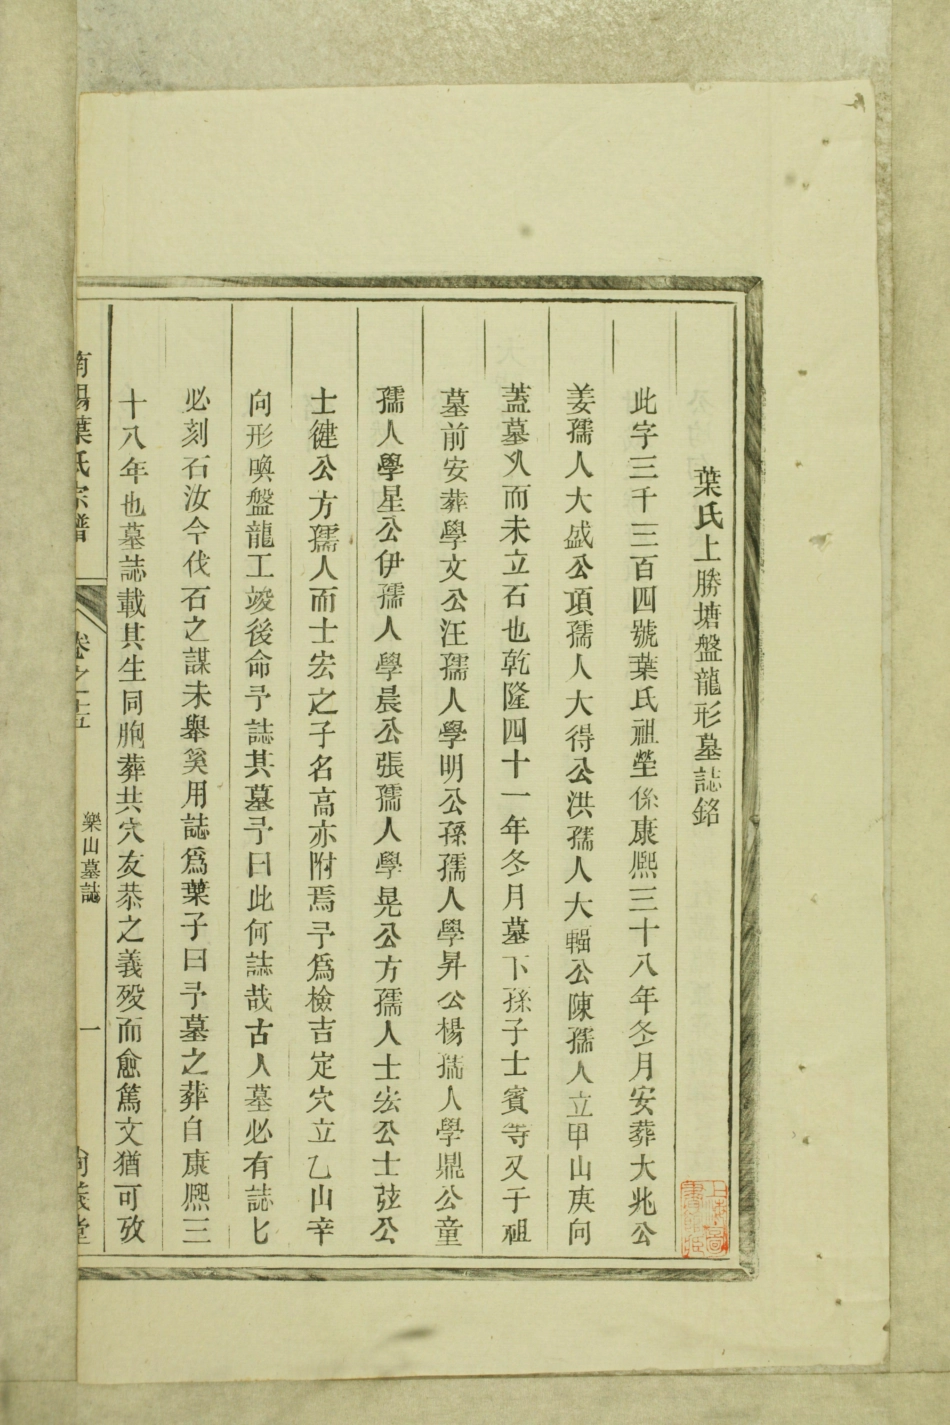 葉氏上勝塘盤龍形墓誌銘
此字三千三百四號葉氏祖塋係康熙三十八年冬月安葬大兆公
姜孺人大盛公項孺人大得公洪孺人大輯公陳孺人立甲山庚向
蓋墓久而未立石也乾隆四十一年冬月墓下孫子士賓等又于祖
墓前安葬學文公汪孺人學明公孫孺人學昇公楊孺人學鼎公童
孺人學星公伊孺人學晨公張孺人學晃公方孺人士宏公士弦公
士健公方孺人而士宏之子名高亦附焉予爲檢吉定穴立乙山辛
向形喚盤龍工竣後命予誌其墓予曰此何誌哉古人墓必有誌匕
必刻石汝今伐石之謀未舉奚用誌爲葉子曰予墓之葬自康熙三
十八年也墓誌載其生同胞葬共穴友恭之義殁而愈篤文猶可攷
南陽葉氏宗譜
卷之十五
樂山墓誌
一